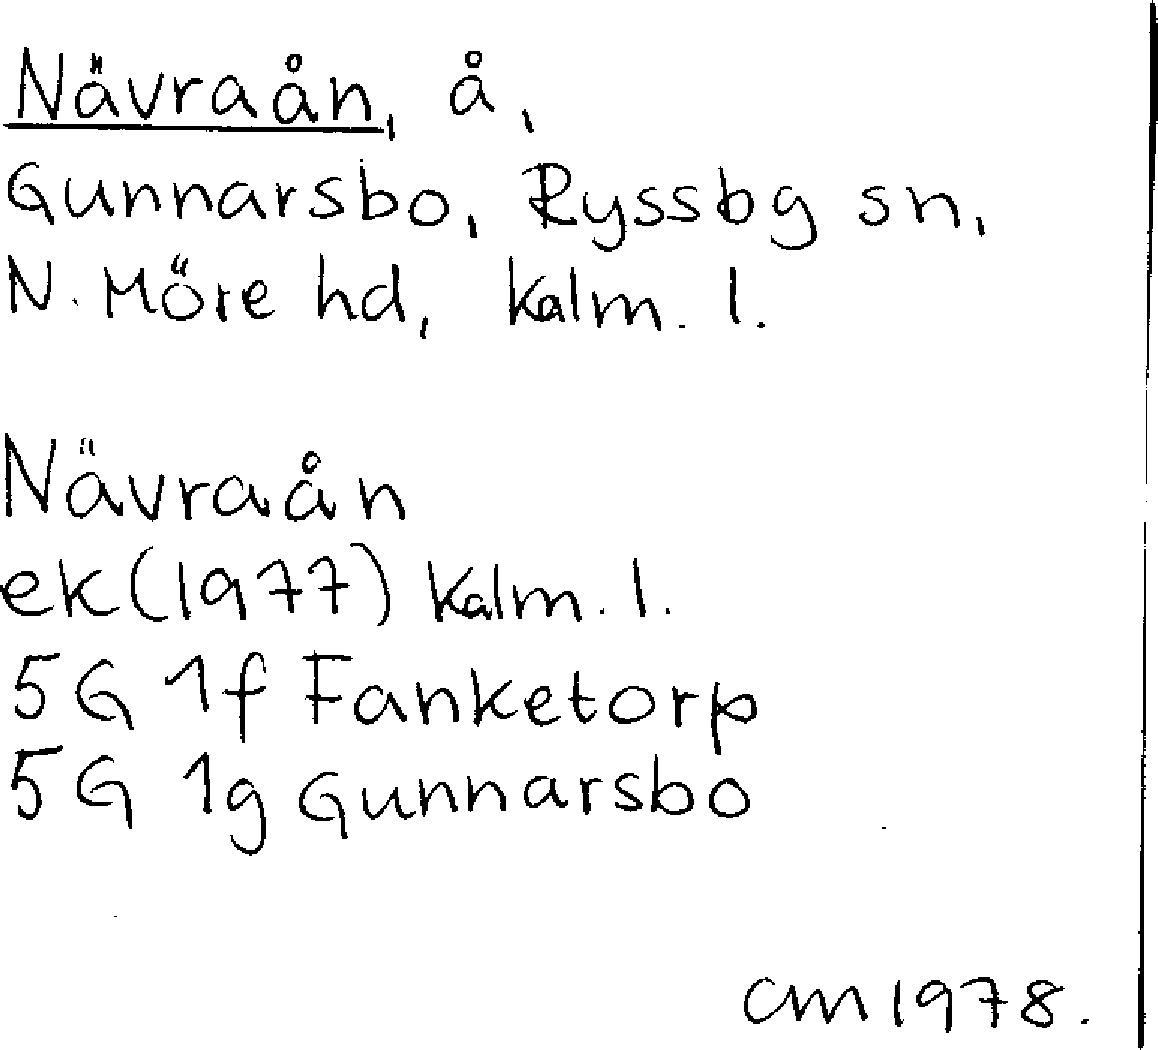 Nävraån, å,
Gunnarsbo, Ryssbg sn,
N. Möre hd, Kalm. l.
Nävraån
ek(1977) Kalm. l.
5G 1f Fanketorp
5G 1g Gunnarsbo
CM 1978.